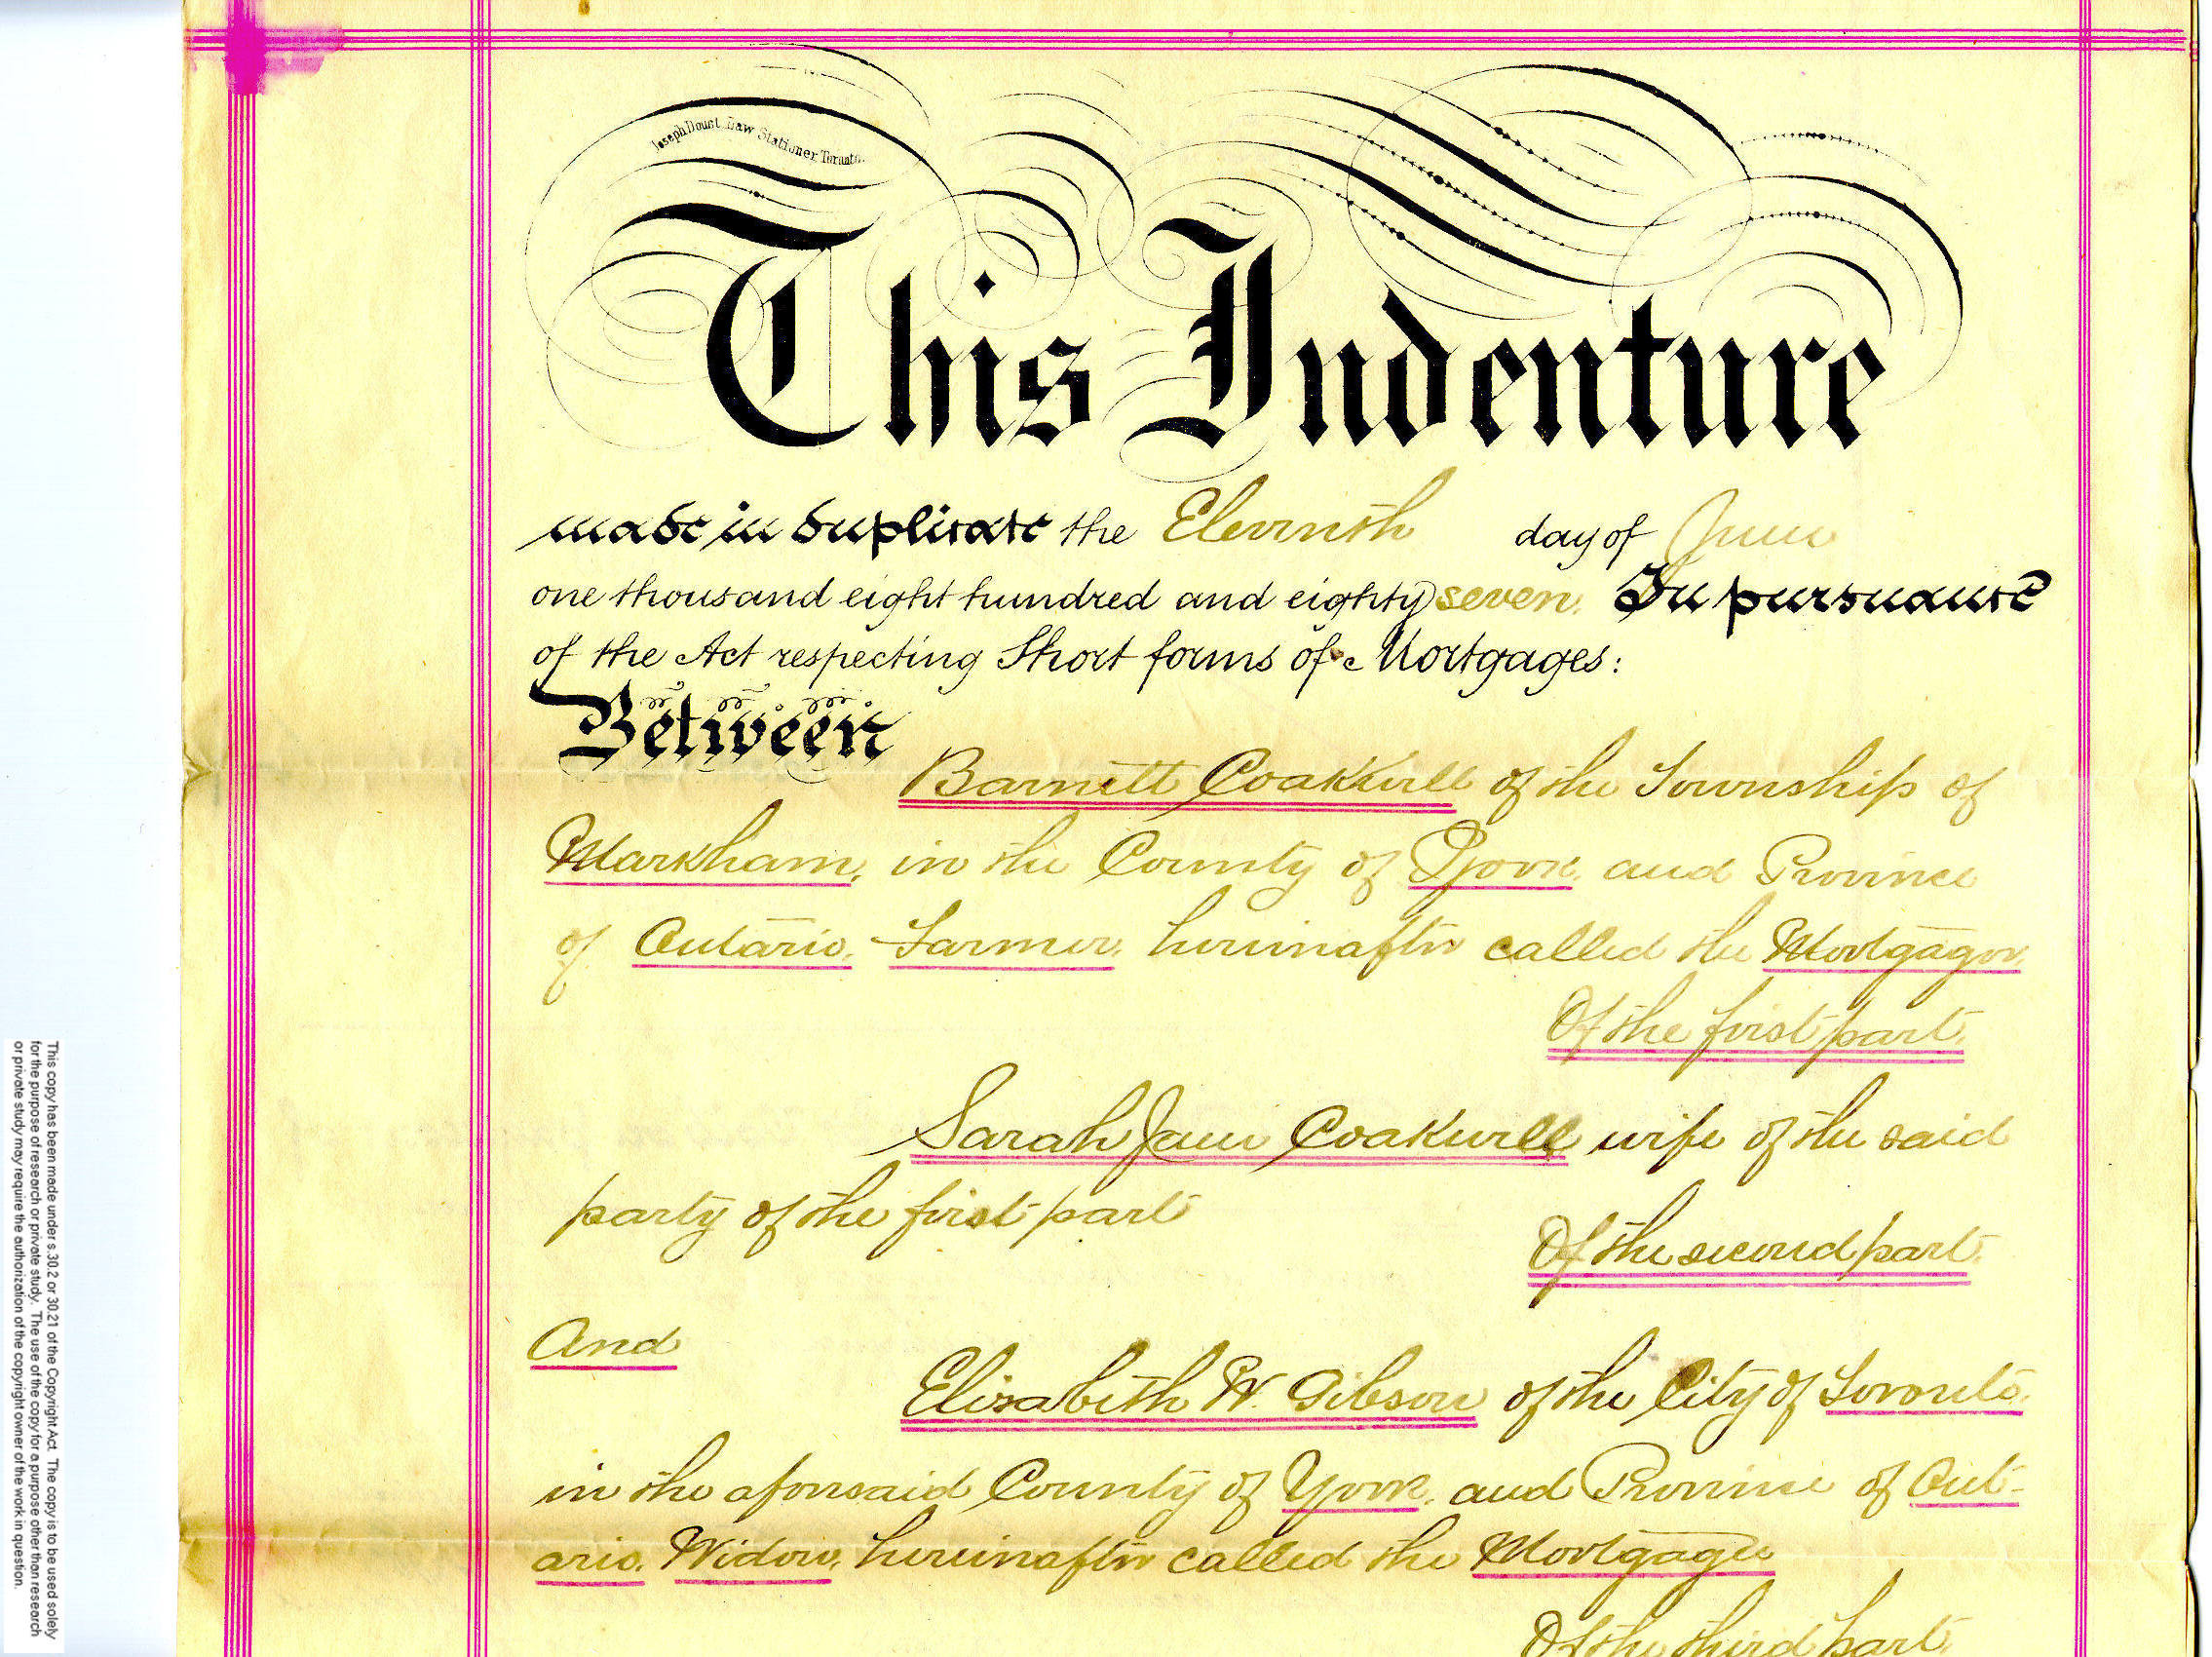 Joseph Doust Law Stationer Toronto.
This Indenture
made in duplicate the Eleventh day of June
one thousand eight hundred and eighty seven. In pursuance
of the Act respecting Short forms of Mortgages:
Between
Barnett Coakwell of the Township of
Markham, in the County of York, and Province
of Ontario, Farmer, hereinafter called the Mortgagor,
Of the first part.
Sarah Jane Coakwell wife of the said
party of the first part
Of the second part.
And
Elizabeth W. Gibson of the City of Toronto,
in the aforesaid County of York, and Province of Ont-
ario, Widow, hereinafter called the Mortgagee
Of the third part.
This copy has been made under s.30.2 or 30.21 of the Copyright Act. The copy is to be used solely
for the purpose of research or private study. The use of the copy for a purpose other than research
or private study may require the authorization of the copyright owner of the work in question.